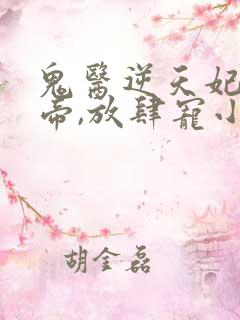 鬼醫逆天妃
帝,放肆寵小
胡金磊